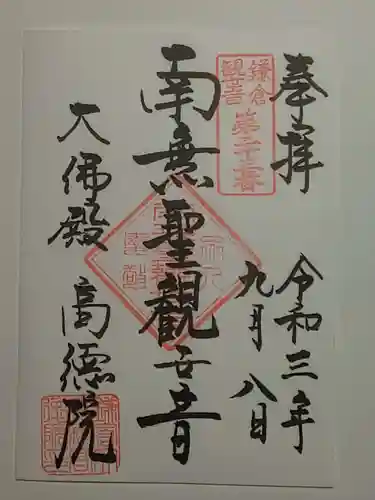 奉拝
令和三年
九月八日
鎌倉
観音
第廿三番
南無聖觀世音
大佛殿 高德院